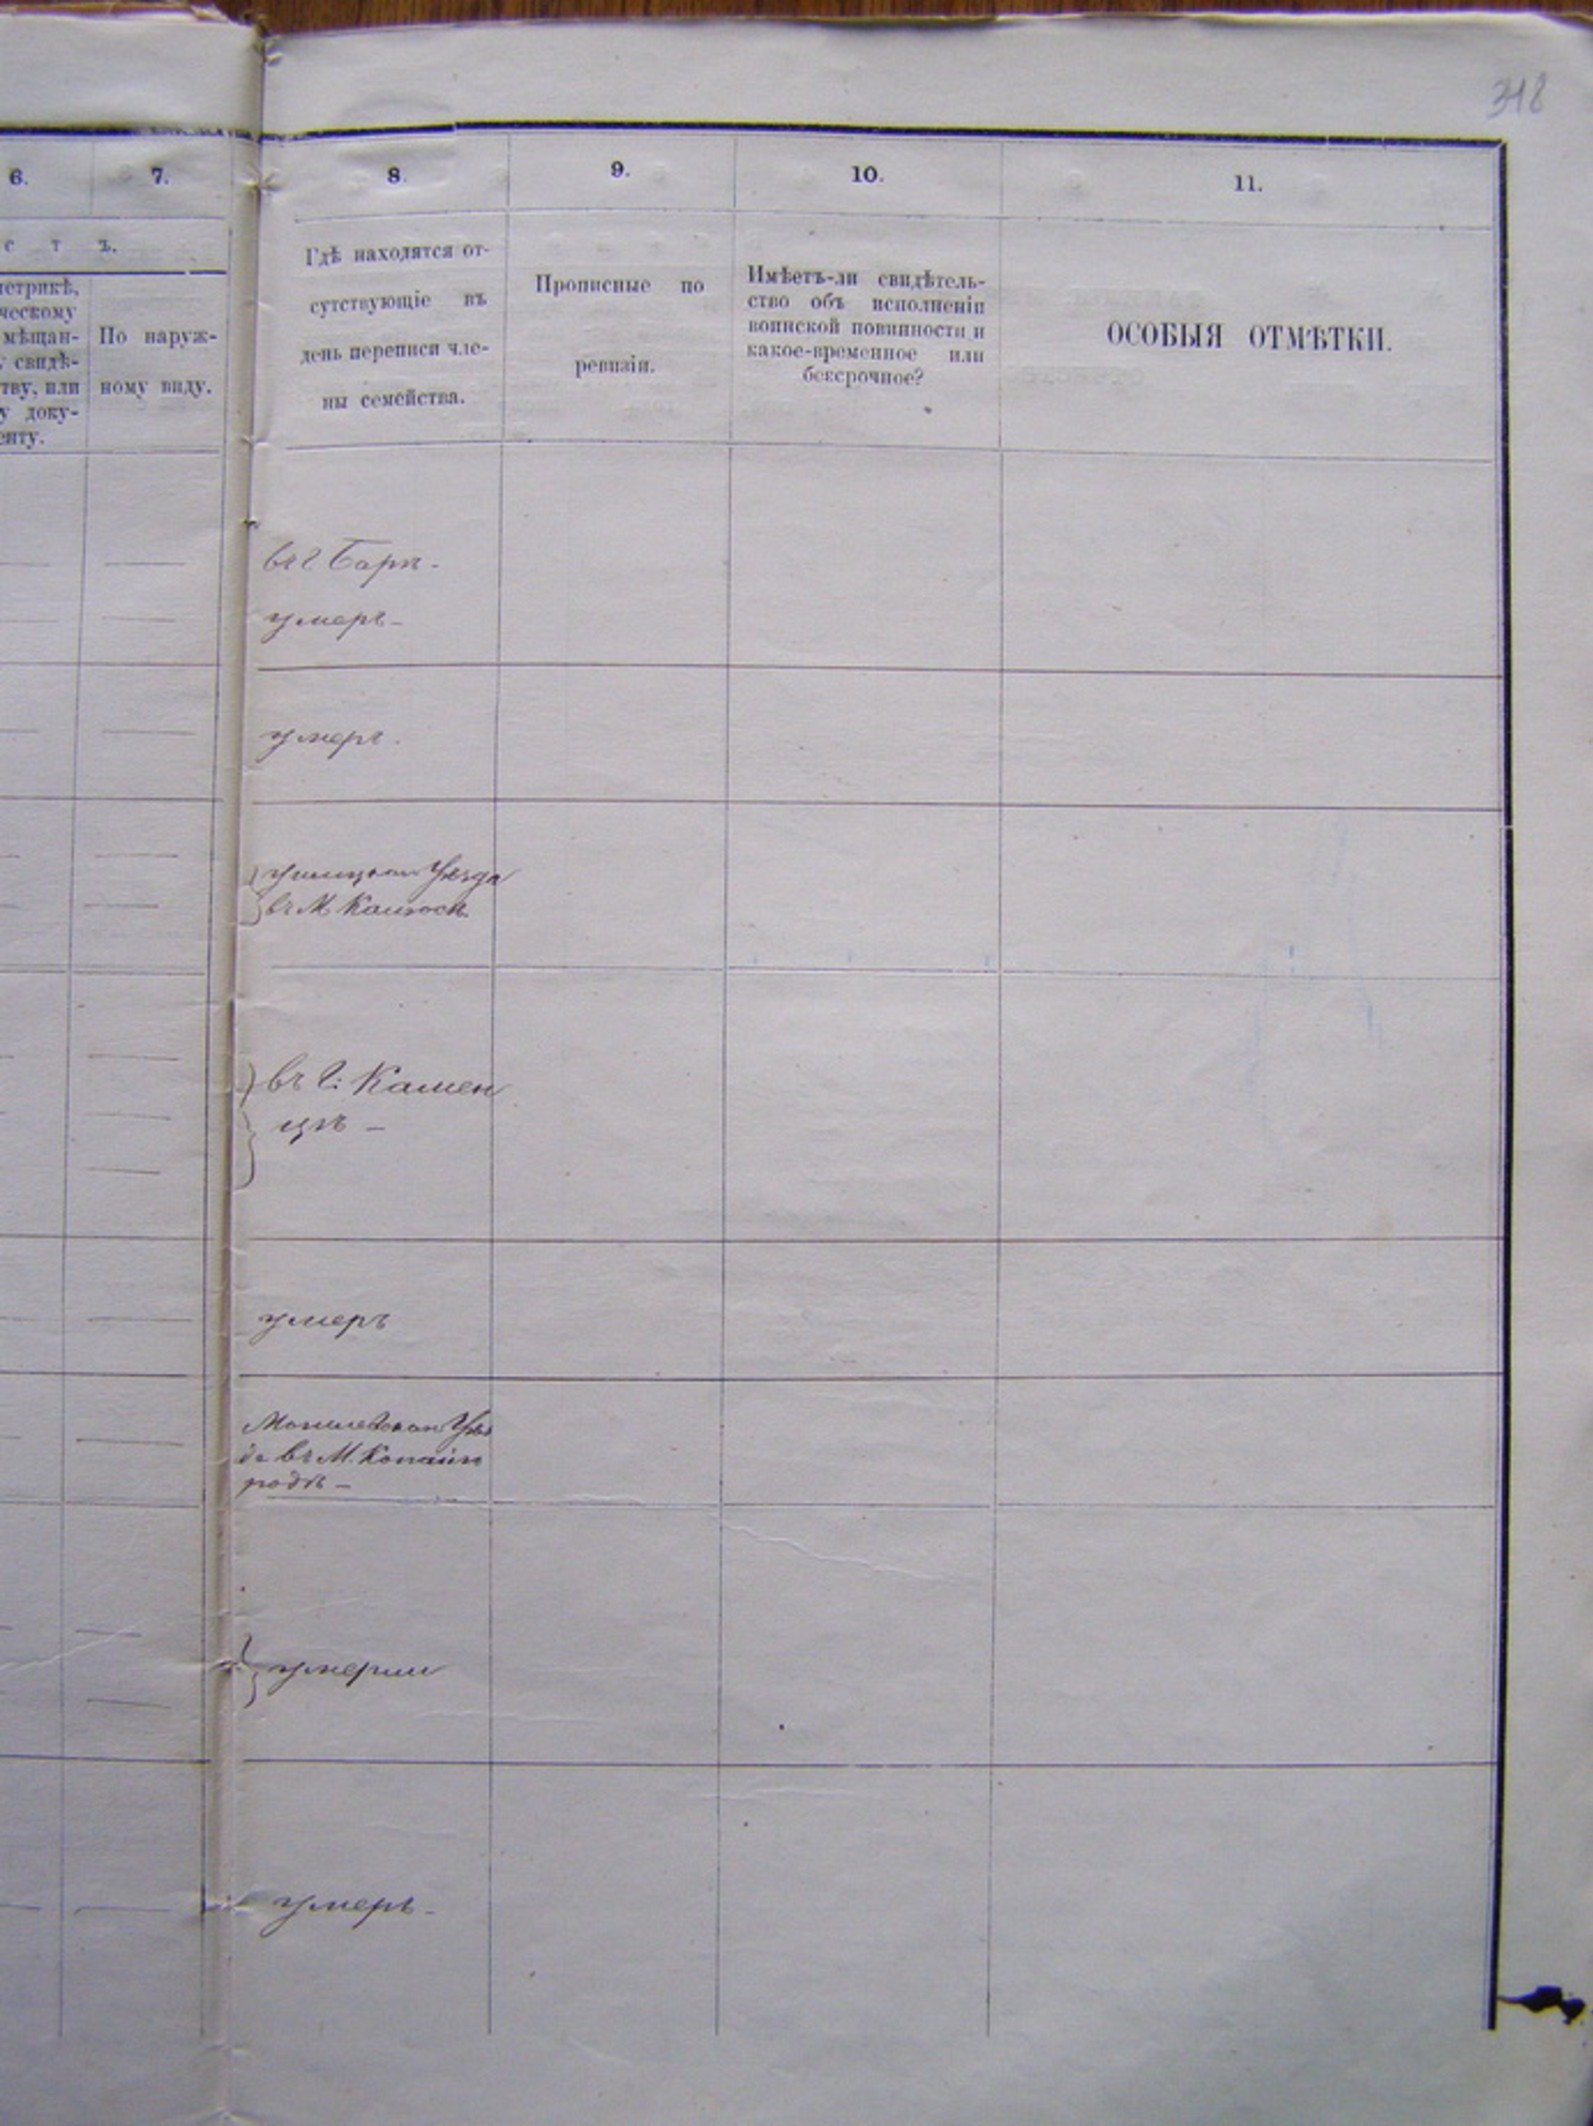 318
6.
7.
8.
9.
10.
11.
с т ъ.
метрикѣ,
ческому
мѣщан-
у свидѣ-
тву, или
у доку-
енту.
По наруж-
ному виду.
Гдѣ находятся от-
сутствующіе въ
день переписи чле-
ны семейства.
Прописные по
ревизіи.
Имѣетъ-ли свидѣтель-
ство объ исполненіи
воинской повинности и
какое-временное или
безсрочное?
ОСОБЫЯ ОТМѢТКИ.
въ г Барѣ -
умеръ -
умеръ.
Ушицкаго Уѣзда
въ М.
въ г: Камен
цѣ -
умеръ
Могилевскаго Уѣз
да въ М. Копайго
родѣ -
умерши
умеръ -